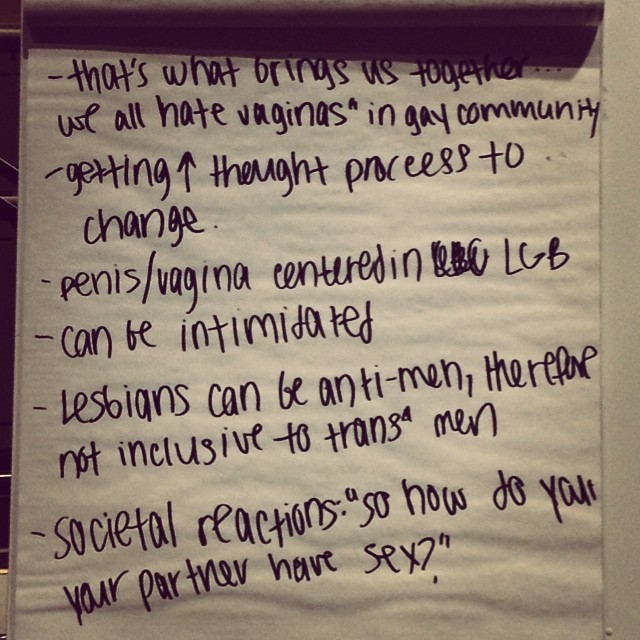 - that's what brings us together...
we all hate vaginas" in gay community
- getting ↑ thought proceess to
change.
- penis/vagina centered in LGB
- can be intimidated
- Lesbians can be anti-men, therefore
not inclusive to trans* men
- societal reactions: "so how do you
your partner have sex?"